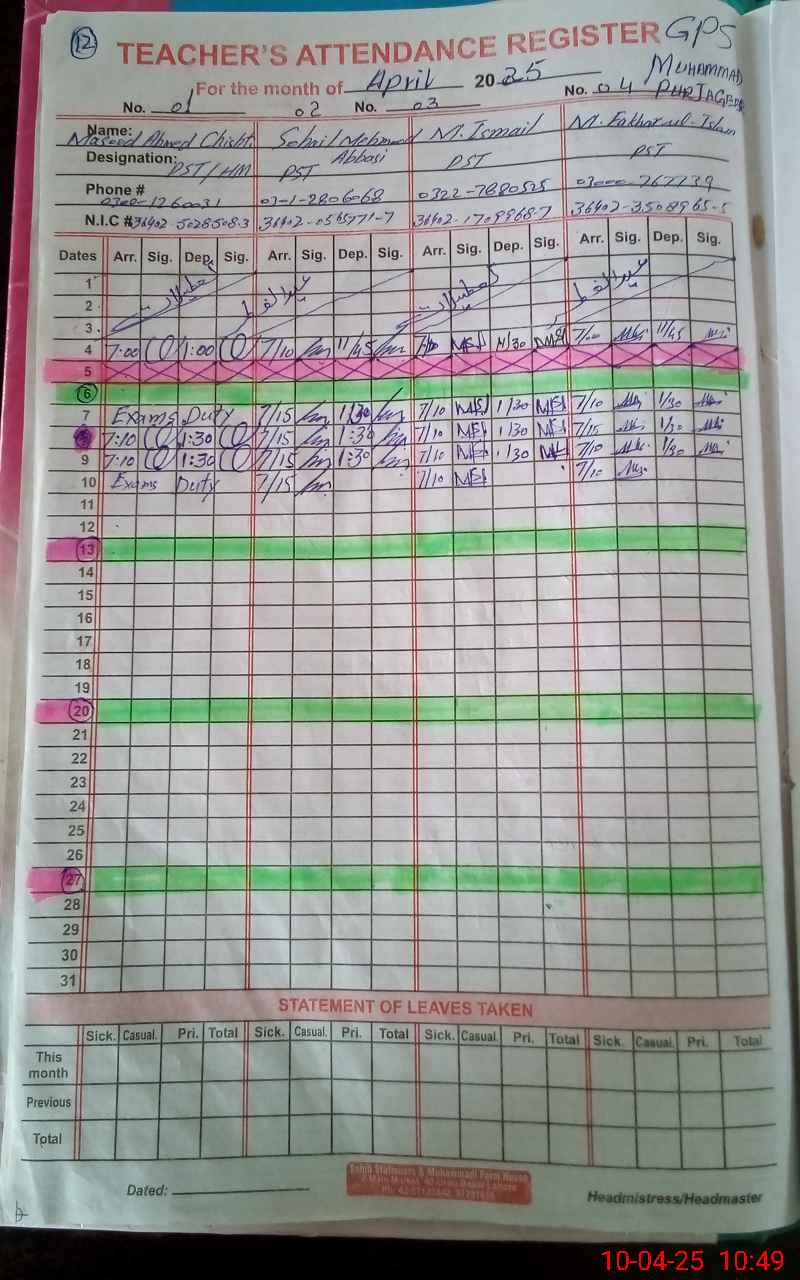 12
TEACHER'S ATTENDANCE REGISTER GPS
For the month of April 2025 MUHAMMAD
No. 01 02 No. 03 No. 04
Name: Masood Ahmed Chishti Sohail Mehmood Abbasi M. Ismail M. Fakhar-ul-Islam
Designation: PST/HM PST PST PST
Phone # 0322-7880525
N.I.C # 36402-5028508-3 36402-0565771-7 36402-1709968-7 36402-3508965-5
Dates Arr. Sig. Dep. Sig. Arr. Sig. Dep. Sig. Arr. Sig. Dep. Sig. Arr. Sig. Dep. Sig.
1 تعطیلات عید الفطر تعطیلات عید الفطر
2
3
4 7:00 1:00 7/10 11/45 7/00 11/30 7/00 11/45
5
6
7 Exams Duty 7/15 1/30 7/10 1/30 7/10 1/30
8 7:10 1:30 7/15 1:30 7/10 1/30 7/15 1/30
9 7:10 1:30 7/15 1:30 7/10 1/30 7/10 1/30
10 Exams Duty 7/15 7/10 7/10
11
12
13
14
15
16
17
18
19
20
21
22
23
24
25
26
27
28
29
30
31
STATEMENT OF LEAVES TAKEN
Sick. Casual. Pri. Total Sick. Casual. Pri. Total Sick. Casual. Pri. Total Sick. Casual. Pri. Total
This month
Previous
Total
Dated:
Headmistress/Headmaster
10-04-25 10:49